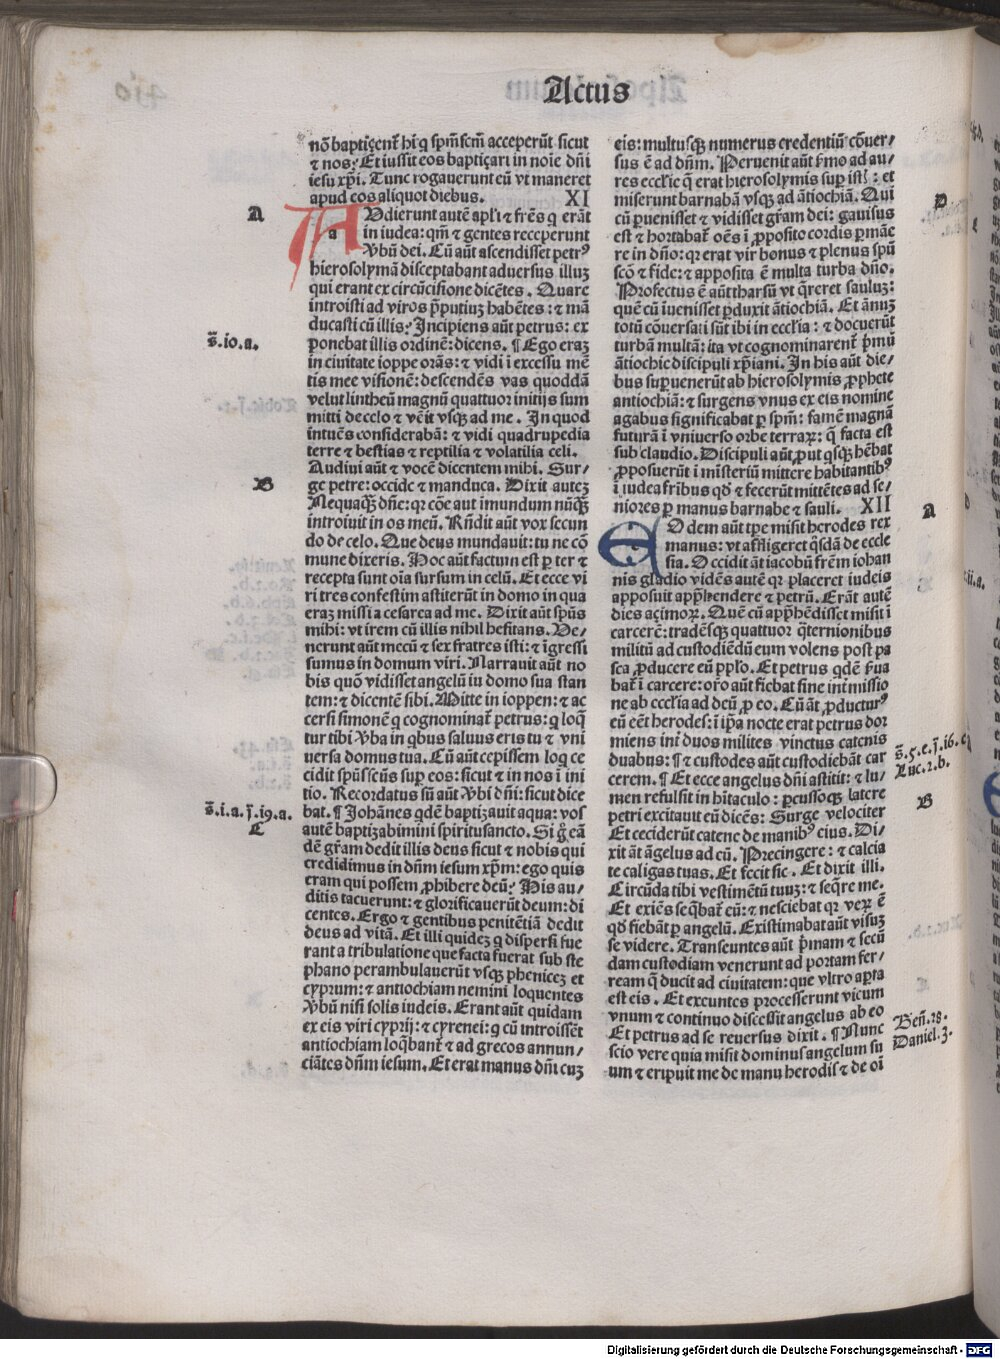 Actus
nō baptiçent᷑ hi q̇ spm̄ scm̄ acceperūt sicut
⁊ nos? Et iussit eos baptiçari in noīe dn̄i
iesu xp̄i. Tunc rogauerunt eū vt maneret
apud eos aliquot diebus. XI
A
AUdierunt autē apl̓i ⁊ fr̄es q̇ erāt
in iudea: qm̄ ⁊ gentes receperunt
v̓bū dei. Cū aūt ascendisset petrꝰ
hierosolymā disceptabant aduersus illuꝫ
qui erant ex circūcisione dicētes. Quare
introisti ad viros p̄putiuꝫ habētes: ⁊ mā
ducasti cū illis? Incipiens aūt petrus: ex
s̄.io.a.
ponebat illis ordinē: dicens. ¶ Ego eraꝫ
in ciuitate ioppe orās: ⁊ vidi ī excessu mē
tis mee visionē: descendēs vas quoddā
velut lintheū magnū quattuor initijs sum
mitti de celo ⁊ vēit vsqꝫ ad me. In quod
intuēs considerabā: ⁊ vidi quadrupedia
terre ⁊ bestias ⁊ reptilia ⁊ volatilia celi.
Audiui aūt ⁊ vocē dicentem mihi. Sur/
B
ge petre: occide ⁊ manduca. Dixit auteꝫ
Nequaqꝫ dn̄e: qꝛ cōe aut īmundum nūqꝫ
introiuit in os meū. Rn̄dit aūt vox secun
do de celo. Que deus mundauit: tu ne cō
mune dixeris. Hoc aūt factum est ꝑ ter ⁊
recepta sunt oīa sursum in celū. Et ecce vi
ri tres confestim astiterūt in domo in qua
eraꝫ missi a cesarea ad me. Dixit aūt spūs
mihi: vt irem cū illis nihil hesitans. Ve/
nerunt aūt mecū ⁊ sex fratres isti: ⁊ īgressi
sumus in domum viri. Narrauit aūt no
bis quō vidisset angelū in domo sua stan
tem: ⁊ dicentē sibi. Mitte in ioppen: ⁊ ac
cersi simonē q̇ cognominat᷑ petrus: q̇ loq̄
tur tibi v̓ba in qbus saluus eris tu ⁊ vni
uersa domus tua. Cū aūt cepissem loq̇ ce
cidit spūsscūs suꝑ eos: sicut ⁊ in nos ī ini
tio. Recordatus sū aūt v̓bi dn̄i: sicut dice
s̄.i.a.j̄.19.a.
bat. ¶ Johānes qdē baptiꝫauit aqua: vos
C
autē baptiꝫabimini spiritusancto. Si g̊ eā
dē gr̄am dedit illis deus sicut ⁊ nobis qui
credidimus in dn̄m iesum xp̄m: ego quis
eram qui possem ꝓhibere deū? His au/
ditis tacuerunt: ⁊ glorificauerūt deum: di
centes. Ergo ⁊ gentibus penitētiā dedit
deus ad vitā. Et illi quideꝫ q̇ dispersi fue
rant a tribulatione que facta fuerat sub ste
phano perambulauerūt vsqꝫ pheniceꝫ et
cyprum: ⁊ antiochiam nemini loquentes
v̓bū nisi solis iudeis. Erant aūt quidam
ex eis viri cyprij: ⁊ cyrenei: q̇ cū introissēt
antiochiam loq̄bant᷑ ⁊ ad grecos annun/
ciātes dn̄m iesum. Et erat manus dn̄i cuꝫ
eis: multusqꝫ numerus credentiū cōuer/
sus ē ad dn̄m. Peruenit aūt ẜmo ad au/
res eccl̓ie q̄ erat hierosolymis suꝑ ist̓: et
miserunt barnabā vsqꝫ ad ātiochiā. Qui
D
cū ꝑuenisset ⁊ vidisset gr̄am dei: gauisus
est ⁊ hortabat᷑ oēs ī ꝓposito cordis ꝑmāe
re in dn̄o: qꝛ erat vir bonus ⁊ plenus spū
scō ⁊ fide: ⁊ apposita ē multa turba dn̄o.
Profectus ē aūt tharsū vt q̄reret sauluꝫ:
quē cū iuenisset ꝑduxit ātiochiā. Et ānuꝫ
totū cōuersati sūt ibi in eccl̓ia: ⁊ docuerūt
turbā multā: ita vt cognominarent᷑ p̄mū
ātiochie discipuli xp̄iani. In his aūt die/
bus suꝑuenerūt ab hierosolymis ꝓphete
antiochiā: ⁊ surgens vnus ex eis nomine
agabus significabat ꝑ spm̄: famē magnā
futurā ī vniuerso orbe terraꝝ: q̄ facta est
sub claudio. Discipuli aūt ꝓut qsqꝫ hēbat
ꝓposuerūt ī mīsteriū mittere habitantibꝰ
ī iudea fr̄ibus qd̓ ⁊ fecerūt mittētes ad se/
niores ꝑ manus barnabe ⁊ sauli. XII
A
EOdem aūt tꝑe misit herodes rex
manus: vt affligeret qsdā de eccle
sia. Occidit āt iacobū fr̄em iohan
nis gladio vidēs autē qꝛ placeret iudeis
apposuit app̄hendere ⁊ petrū. Erāt autē
dies açimoꝝ. Quē cū app̄hēdisset misit ī
carcerē: tradēsqꝫ quattuor q̄ternionibus
militū ad custodiēdū eum volens post pa
sca ꝓducere eū pp̄lo. Et petrus qdē ẜua
bat᷑ ī carcere: or̄o aūt fiebat sine int̓missio
ne ab eccl̓ia ad deū ꝓ eo. Cū āt ꝓducturꝰ
eū eēt herodes: ī ip̄a nocte erat petrus dor
miens int̓ duos milites vinctus catenis
s̄.5.e.j̄.16.e
duabus: ¶ ⁊ custodes aūt custodiebāt car
Luc.2.b.
cerem. ¶ Et ecce angelus dn̄i astitit: ⁊ lu/
men refulsit in hītaculo: ꝑcussoqꝫ latere
B
petri excitauit eū dicēs: Surge velociter
Et ceciderūt catene de manibꝰ eius. Di/
xit āt āgelus ad eū. Precingere: ⁊ calcia
te caligas tuas. Et fecit sic. Et dixit illi.
Circūda tibi vestimētū tuuꝫ: ⁊ seq̄re me.
Et exiēs seq̄bat᷑ eū: ⁊ nesciebat qꝛ veꝝ ē
qd̓ fiebāt ꝑ angelū. Existimabat aūt visuꝫ
se videre. Transeuntes aūt p̄mam ⁊ secū
dam custodiam venerunt ad portam fer/
ream q̄ ducit ad ciuitatem: que vltro aꝑta
est eis. Et exeuntes processerunt vicum
vnum ⁊ continuo discessit angelus ab eo
Gen̄.28.
Et petrus ad se reuersus dixit. ¶ Nunc
Daniel.3.
scio vere quia misit dominus angelum su
um ⁊ eripuit me de manu herodis ⁊ de oī
Digitalisierung gefördert durch die Deutsche Forschungsgemeinschaft - DFG